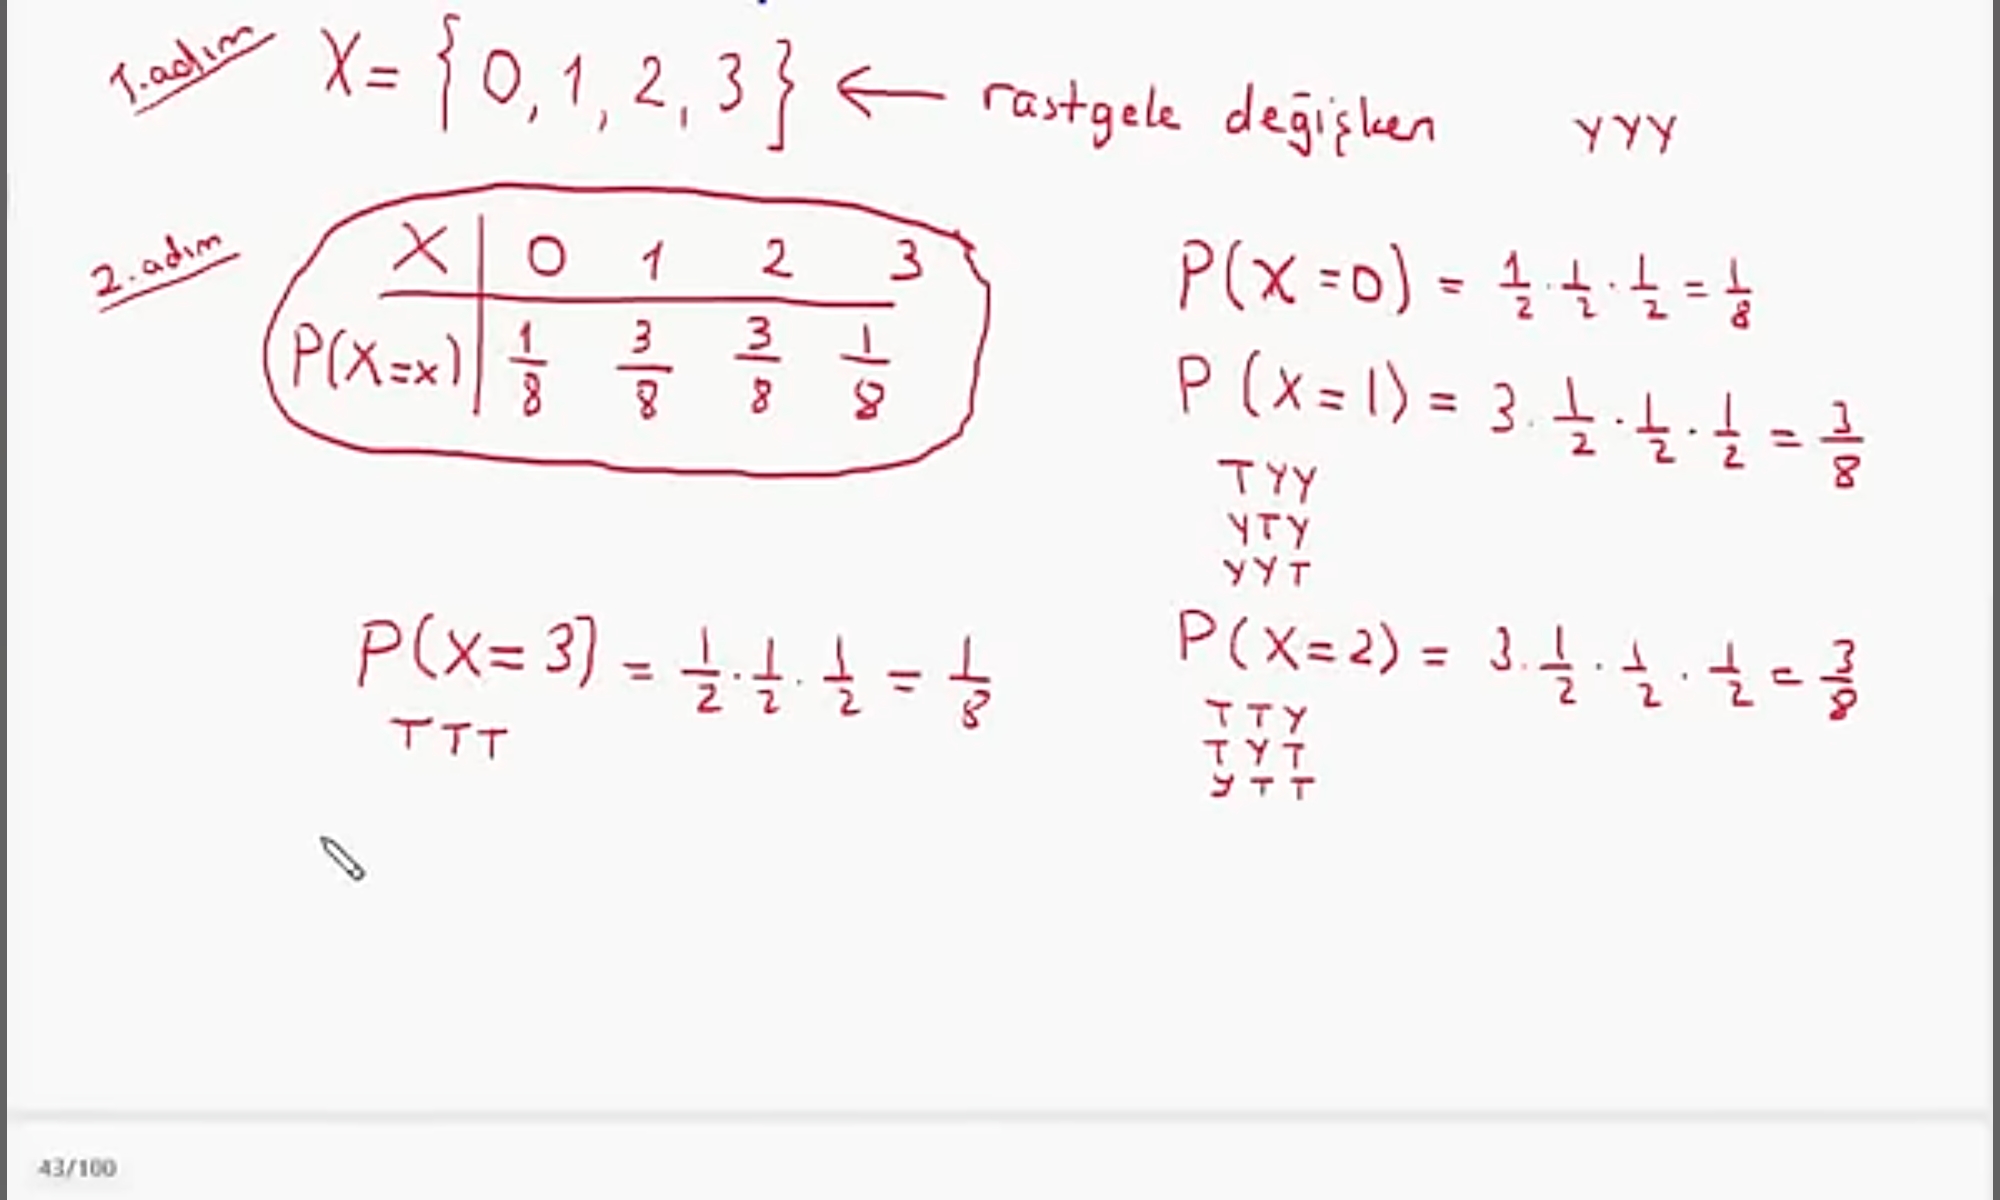 1.adım X = {0, 1, 2, 3} ← rastgele değişken YYY
2.adım
X | 0 1 2 3
P(X=x) | 1/8 3/8 3/8 1/8
P(X=0) = 1/2 · 1/2 · 1/2 = 1/8
P(X=1) = 3 · 1/2 · 1/2 · 1/2 = 3/8
TYY
YTY
YYT
P(X=2) = 3 · 1/2 · 1/2 · 1/2 = 3/8
TTY
TYT
YTT
P(X=3) = 1/2 · 1/2 · 1/2 = 1/8
TTT
43/100